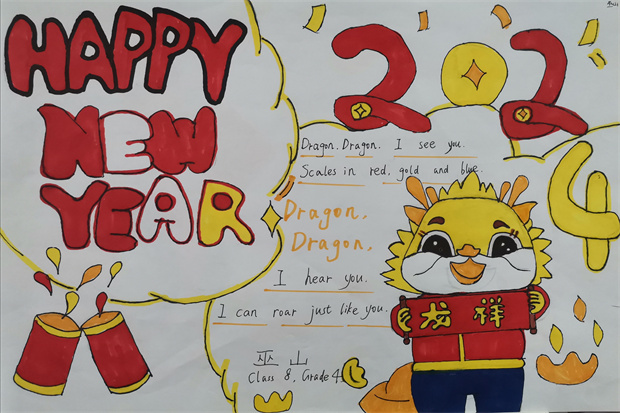 HAPPY
NEW
YEAR
2024
Dragon. Dragon. I see you.
Scales in red, gold and blue.
Dragon,
Dragon,
I hear you.
I can roar just like you.
龙祥
巫山
Class 8, Grade 4